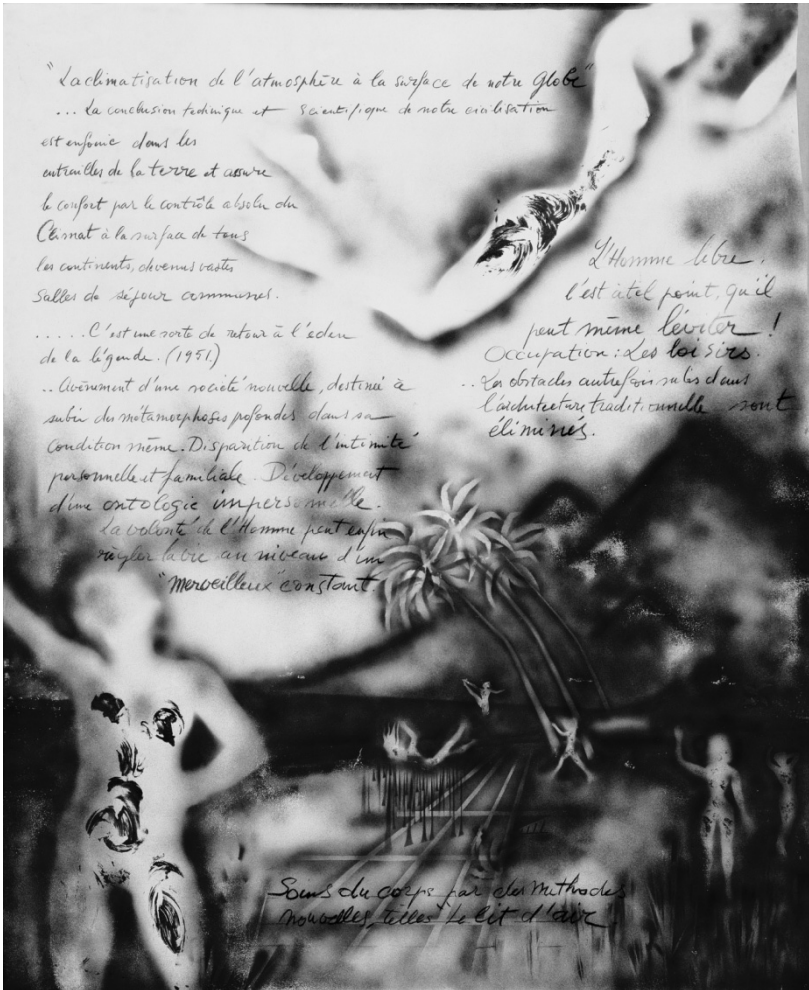 "La climatisation de l'atmosphère à la surface de notre globe"
... La conclusion technique et scientifique de notre civilisation
est enfouie dans les
entrailles de la terre et assure
le confort par le contrôle absolu du
Climat à la surface de tous
les continents, devenus vastes
salles de séjour communes.
..... C'est une sorte de retour à l'eden
de la légende. (1951.)
.. Avènement d'une société nouvelle, destinée à
subir des métamorphoses profondes dans sa
condition même. Disparition de l'intimité
personnelle et familiale. Développement
d'une ontologie impersonnelle.
La volonté de l'Homme peut enfin
régler la vie au niveau d'un
"merveilleux" constant.
L'Homme libre,
l'est à tel point, qu'il
peut même léviter !
Occupation : Les loisirs.
.. Les obstacles autrefois subis dans
l'architecture traditionnelle sont
éliminés.
Soins du corps par des méthodes
nouvelles, telles le lit d'air